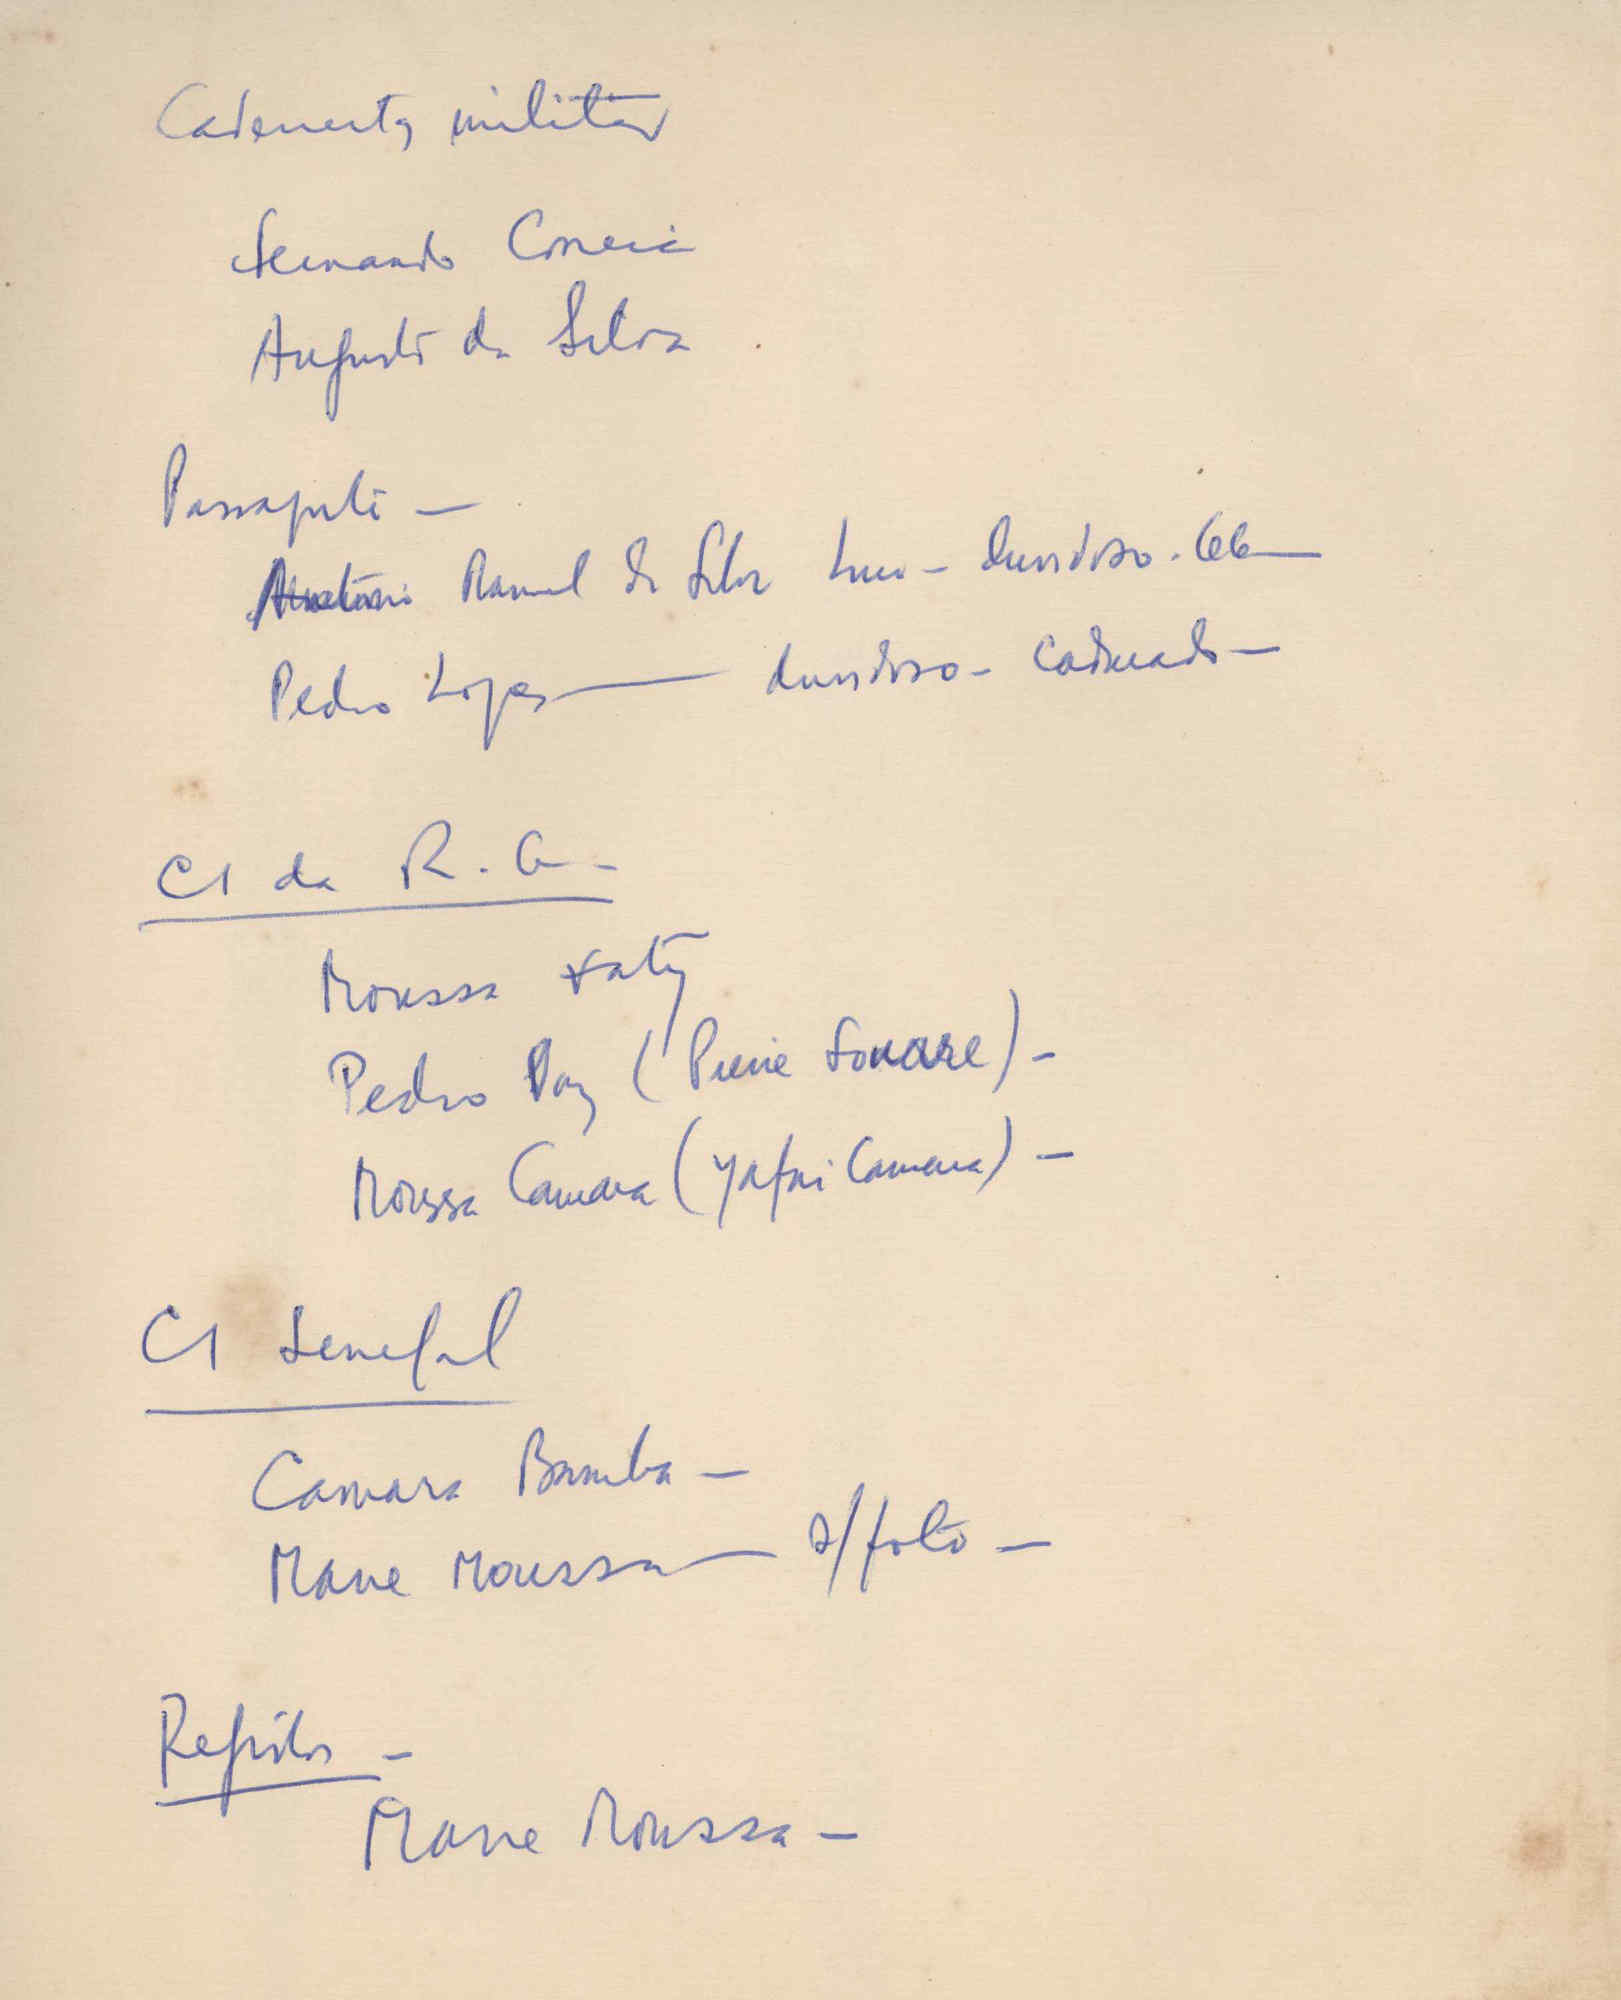 Caderneta militar
Fernando Correia
Augusto da Silva
Passaporte —
António Manuel da Silva - duvidoso - 66 —
Pedro Lopes — duvidoso - Caducado —
CI da R. G. -
Moussa Katy
Pedro Paz (Pierre Souare) -
Moussa Camara (Yafai Camara) -
CI Senegal
Camara Bamba —
Mane Moussa — s/ foto —
Registos -
Mane Moussa —